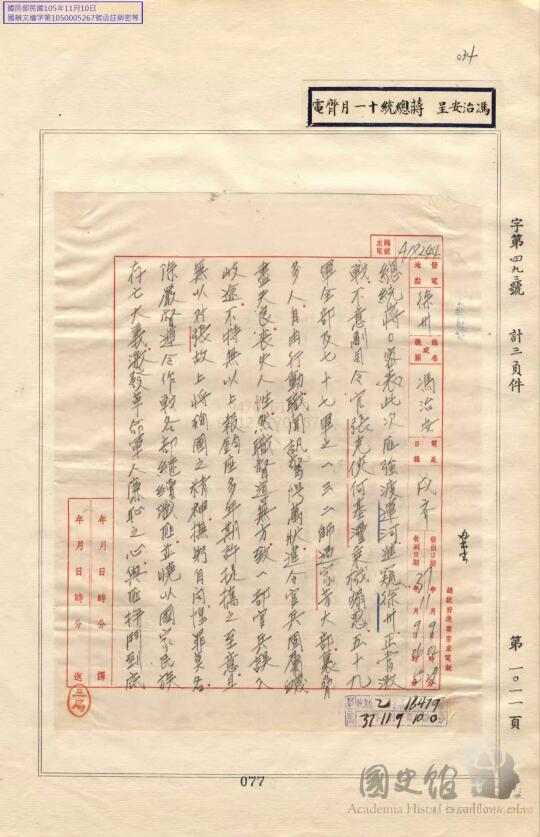 國防部民國105年11月10日
國辦文檔字第1050005267號函註銷密等
034
馮治安呈 蔣總統十一月齊電
字第四九三號 計三頁件
第一〇一一頁
發電地點 徐州
姓名或機關 馮治安
電尾日韻 戌齊
發出日期 37年11月9日02時
收到日期 年11月9日06時
總統府機要室來電紙
總統蔣 密表此次匪強渡運河進窺徐州正官激
戰不意副司令官張克俠何基灃 五十九
軍全部及七十七軍之一三二師過家芳大部裹脅
多人自由行動職聞訊驚愕萬狀 令官兵固屬
盡天良喪失人性 職督導無方致一部官兵誤入
歧途不特無以上報鈞座多年期許提攜之至意且
無以對張故上將殉國之精神撫躬自問惶罪莫名
除嚴督遵令作戰各部繼續殲匪並曉以國家民族
存亡大義激發革命軍人廉恥之心與匪拼鬥到底
年月日時分 譯
年月日時分 送
三局
乙 16479
37 11 9 1030
077
國史館
Academia Historica